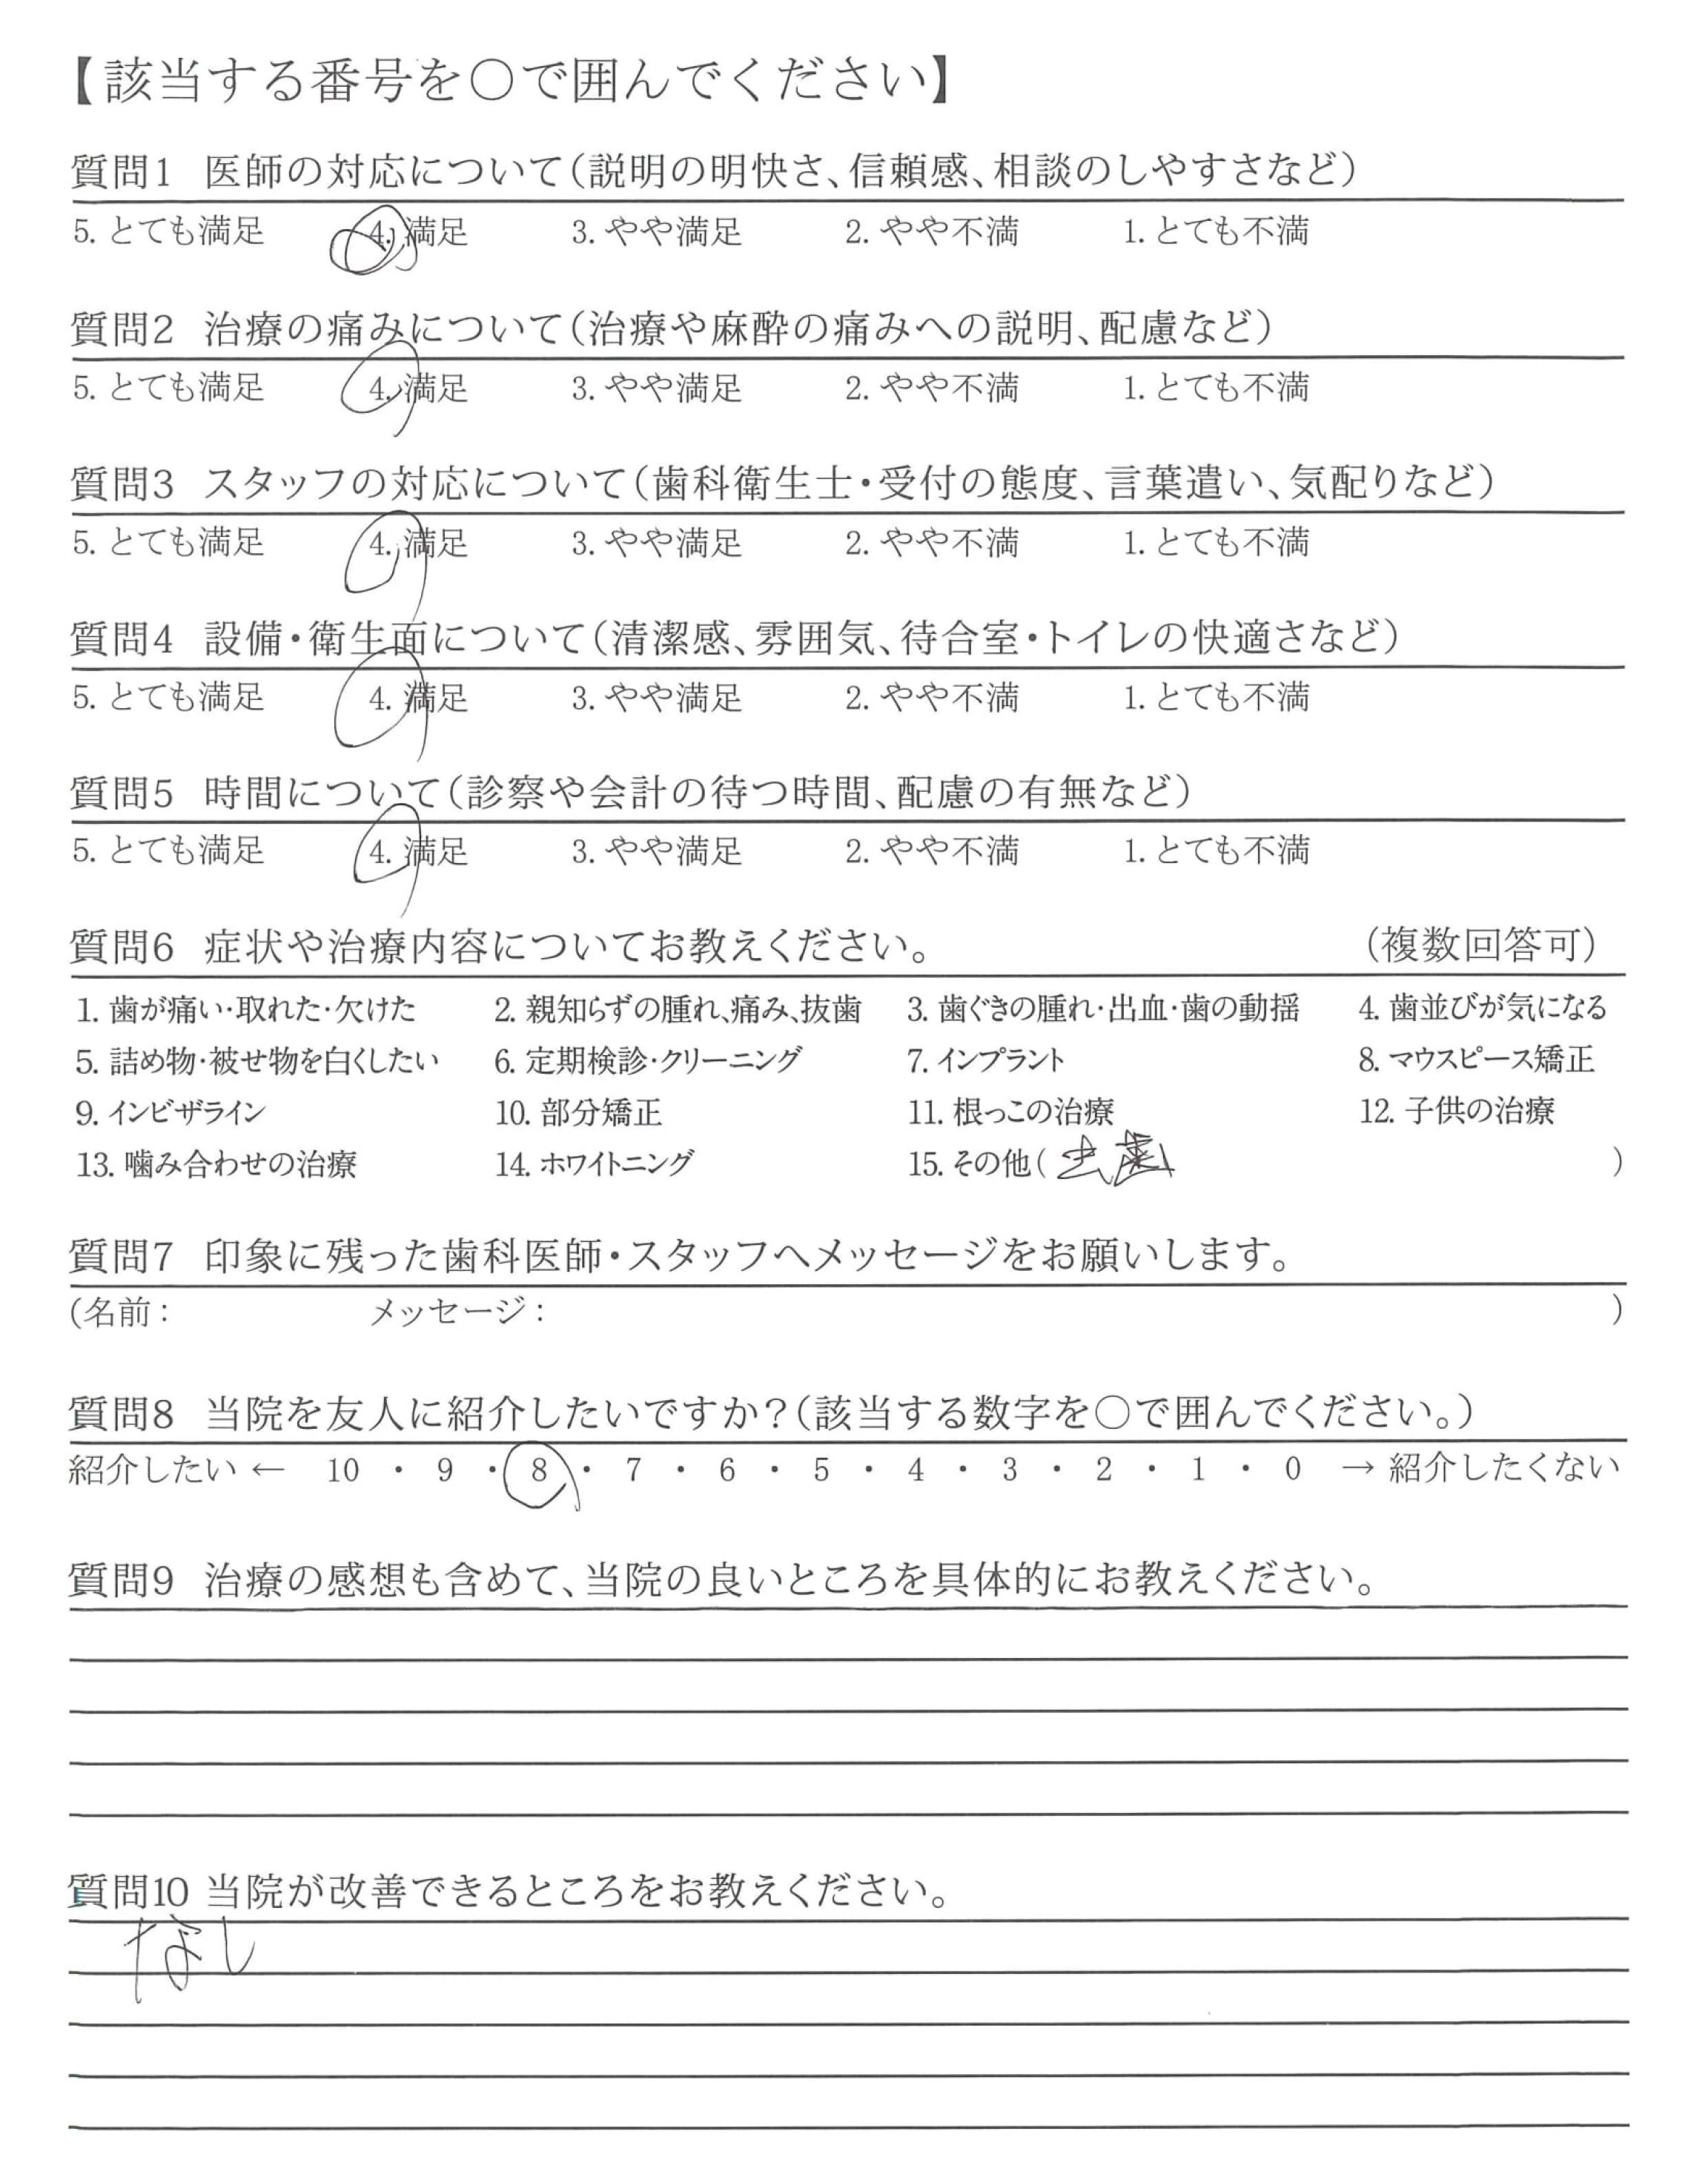 【該当する番号を○で囲んでください】
質問1 医師の対応について(説明の明快さ、信頼感、相談のしやすさなど)
5. とても満足 4. 満足 3. やや満足 2. やや不満 1. とても不満
質問2 治療の痛みについて(治療や麻酔の痛みへの説明、配慮など)
5. とても満足 4. 満足 3. やや満足 2. やや不満 1. とても不満
質問3 スタッフの対応について(歯科衛生士・受付の態度、言葉遣い、気配りなど)
5. とても満足 4. 満足 3. やや満足 2. やや不満 1. とても不満
質問4 設備・衛生面について(清潔感、雰囲気、待合室・トイレの快適さなど)
5. とても満足 4. 満足 3. やや満足 2. やや不満 1. とても不満
質問5 時間について(診察や会計の待つ時間、配慮の有無など)
5. とても満足 4. 満足 3. やや満足 2. やや不満 1. とても不満
質問6 症状や治療内容についてお教えください。 (複数回答可)
1. 歯が痛い・取れた・欠けた 2. 親知らずの腫れ、痛み、抜歯 3. 歯ぐきの腫れ・出血・歯の動揺 4. 歯並びが気になる
5. 詰め物・被せ物を白くしたい 6. 定期検診・クリーニング 7. インプラント 8. マウスピース矯正
9. インビザライン 10. 部分矯正 11. 根っこの治療 12. 子供の治療
13. 噛み合わせの治療 14. ホワイトニング 15. その他( 虫歯 )
質問7 印象に残った歯科医師・スタッフへメッセージをお願いします。
(名前: メッセージ: )
質問8 当院を友人に紹介したいですか?(該当する数字を○で囲んでください。)
紹介したい ← 10 ・ 9 ・ 8 ・ 7 ・ 6 ・ 5 ・ 4 ・ 3 ・ 2 ・ 1 ・ 0 → 紹介したくない
質問9 治療の感想も含めて、当院の良いところを具体的にお教えください。
質問10 当院が改善できるところをお教えください。
なし